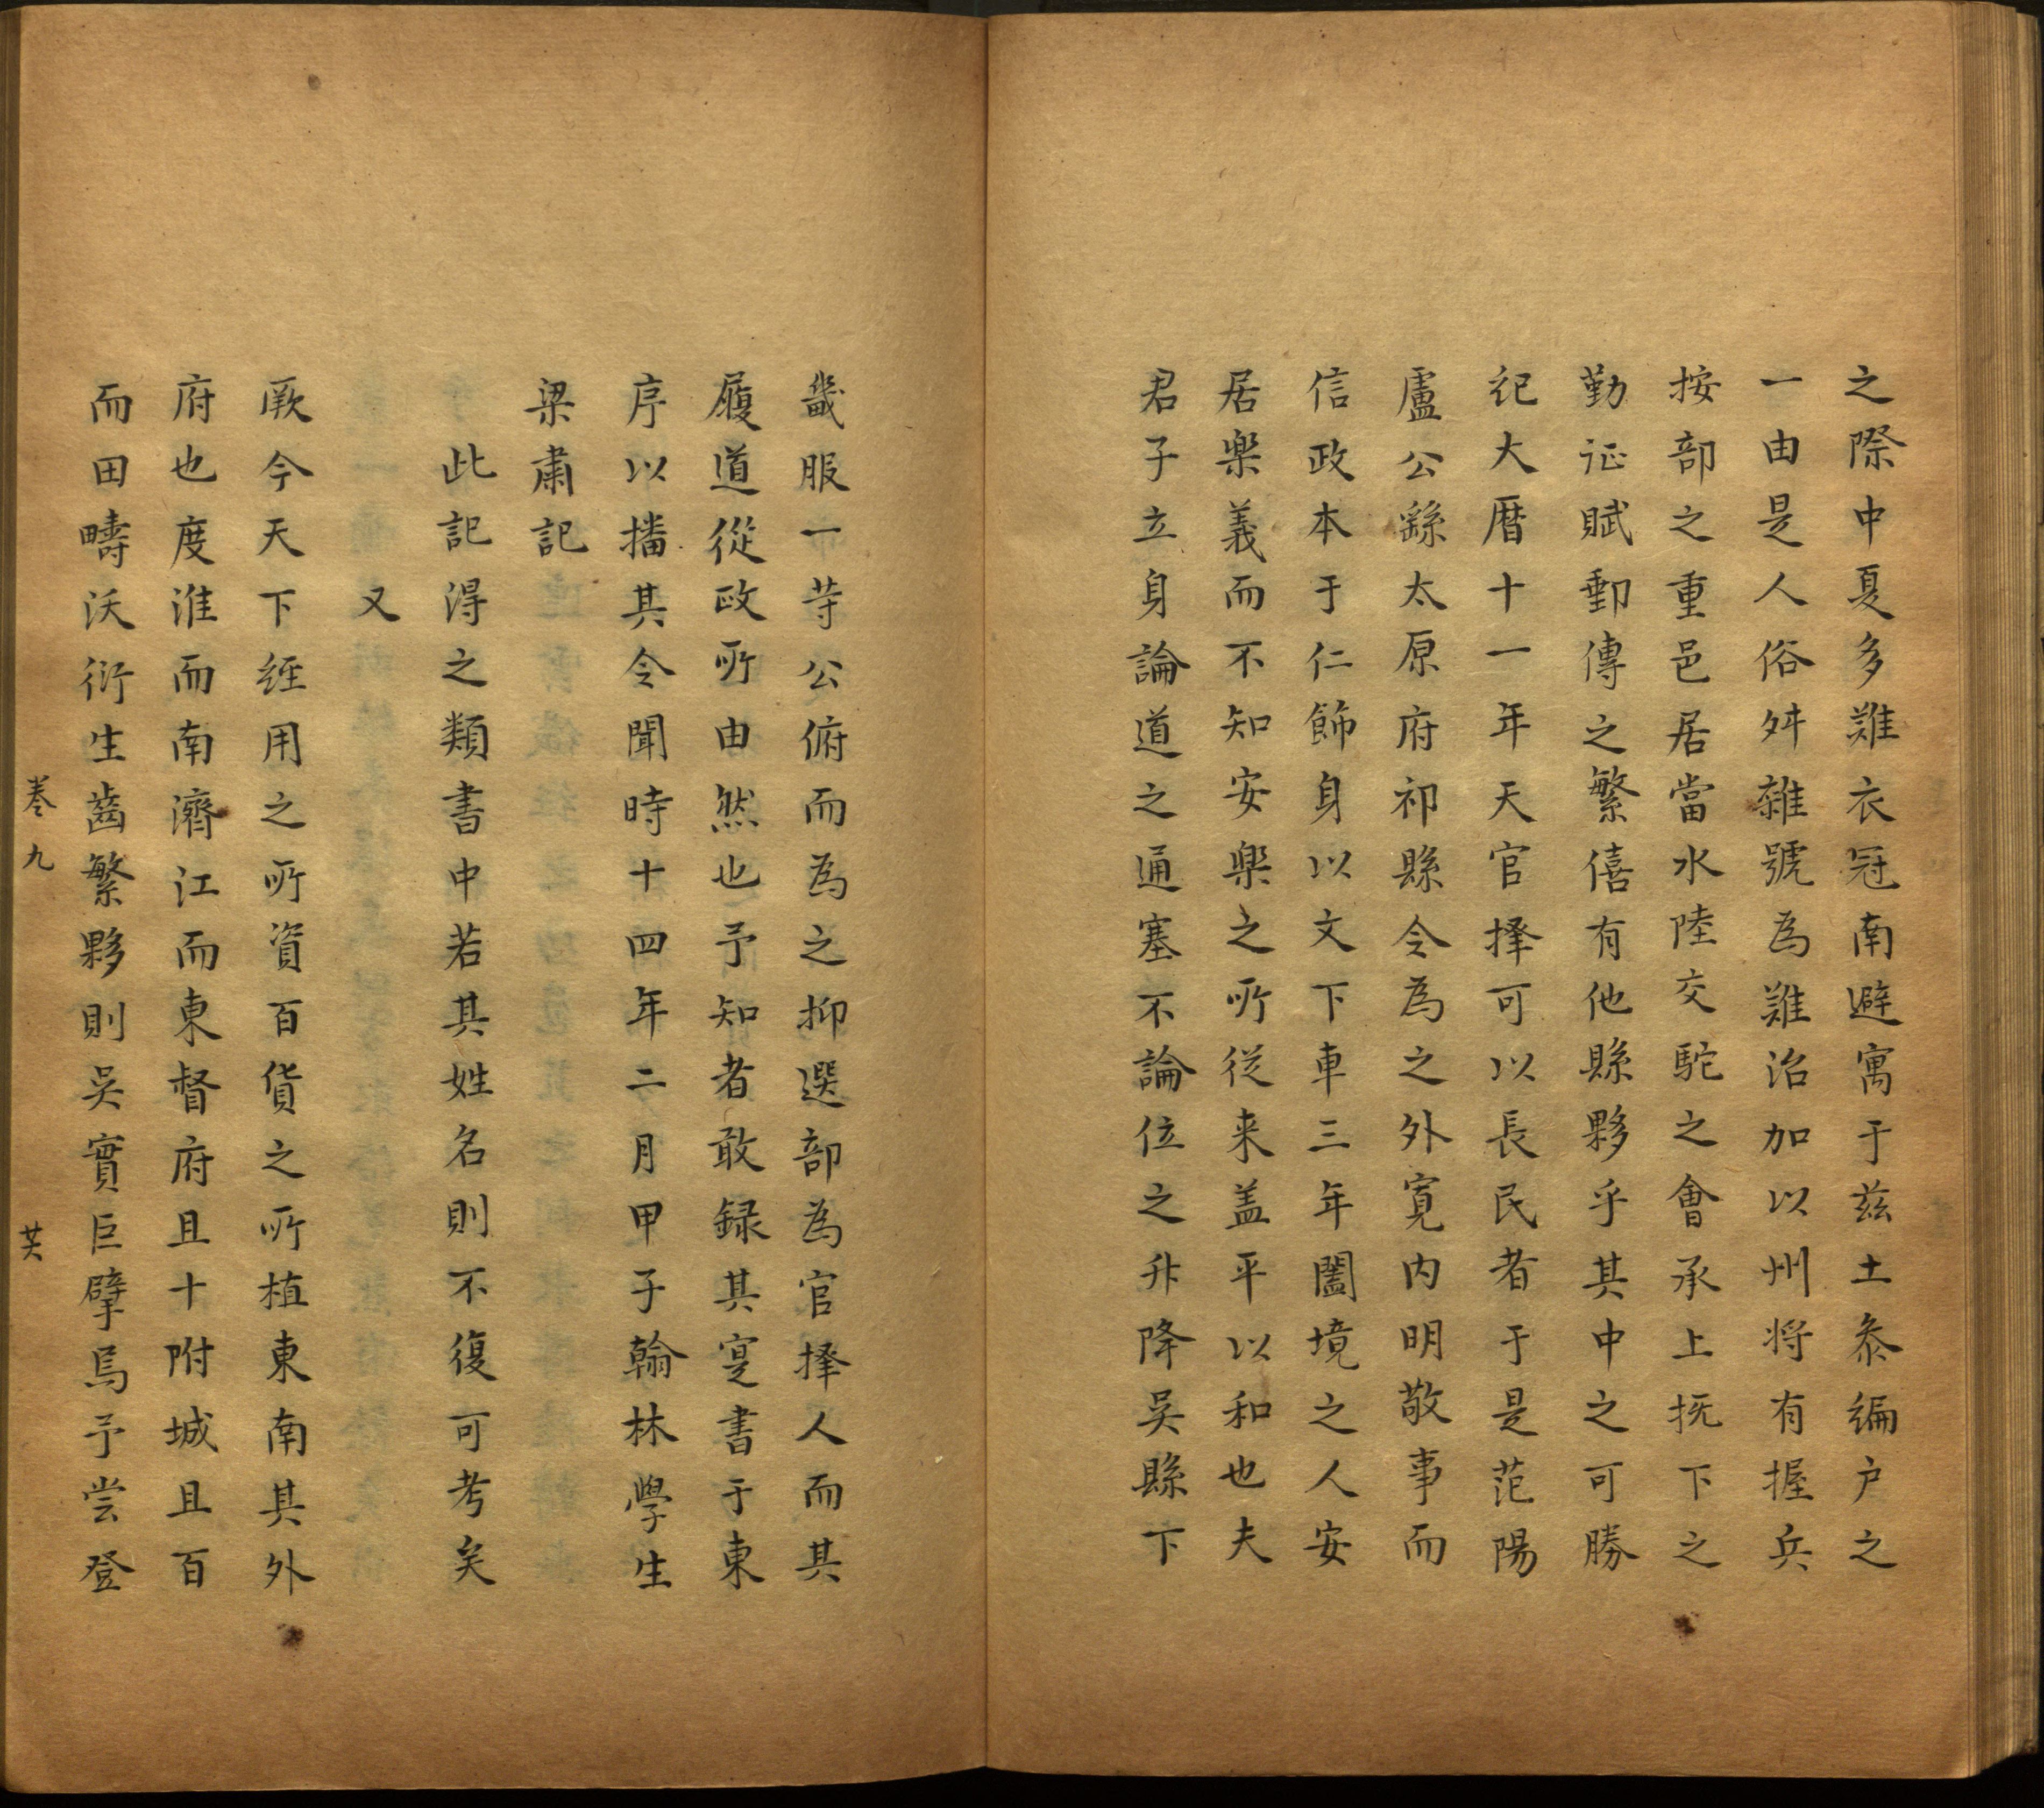 之際中夏多難衣冠南避寓于茲土叅編户之
一由是人俗舛雜號為難治加以州將有握兵
按部之重邑居當水陸交駝之會承上抚下之
勤征賦郵傳之繁僖有他縣夥乎其中之可勝
祀大曆十一年天官择可以長民者于是范陽
盧公繇太原府祁縣令為之外寛内明敬事而
信政本于仁飾身以文下車三年闔境之人安
居楽義而不知安楽之所従来盖平以和也夫
君子立身論道之通塞不論位之升降吳縣下
畿服一等公俯而為之抑選部為官择人而其
履道從政所由然也予知者敢録其寔書于東
序以播其令聞時十四年二月甲子翰林學生
梁肅記
此記得之類書中若其姓名則不復可考矣
又
厥今天下經用之所資百貨之所植東南其外
府也度淮而南濟江而東督府且十附城且百
而田疇沃衍生齒繁夥則吳實巨擘焉予尝登
卷九